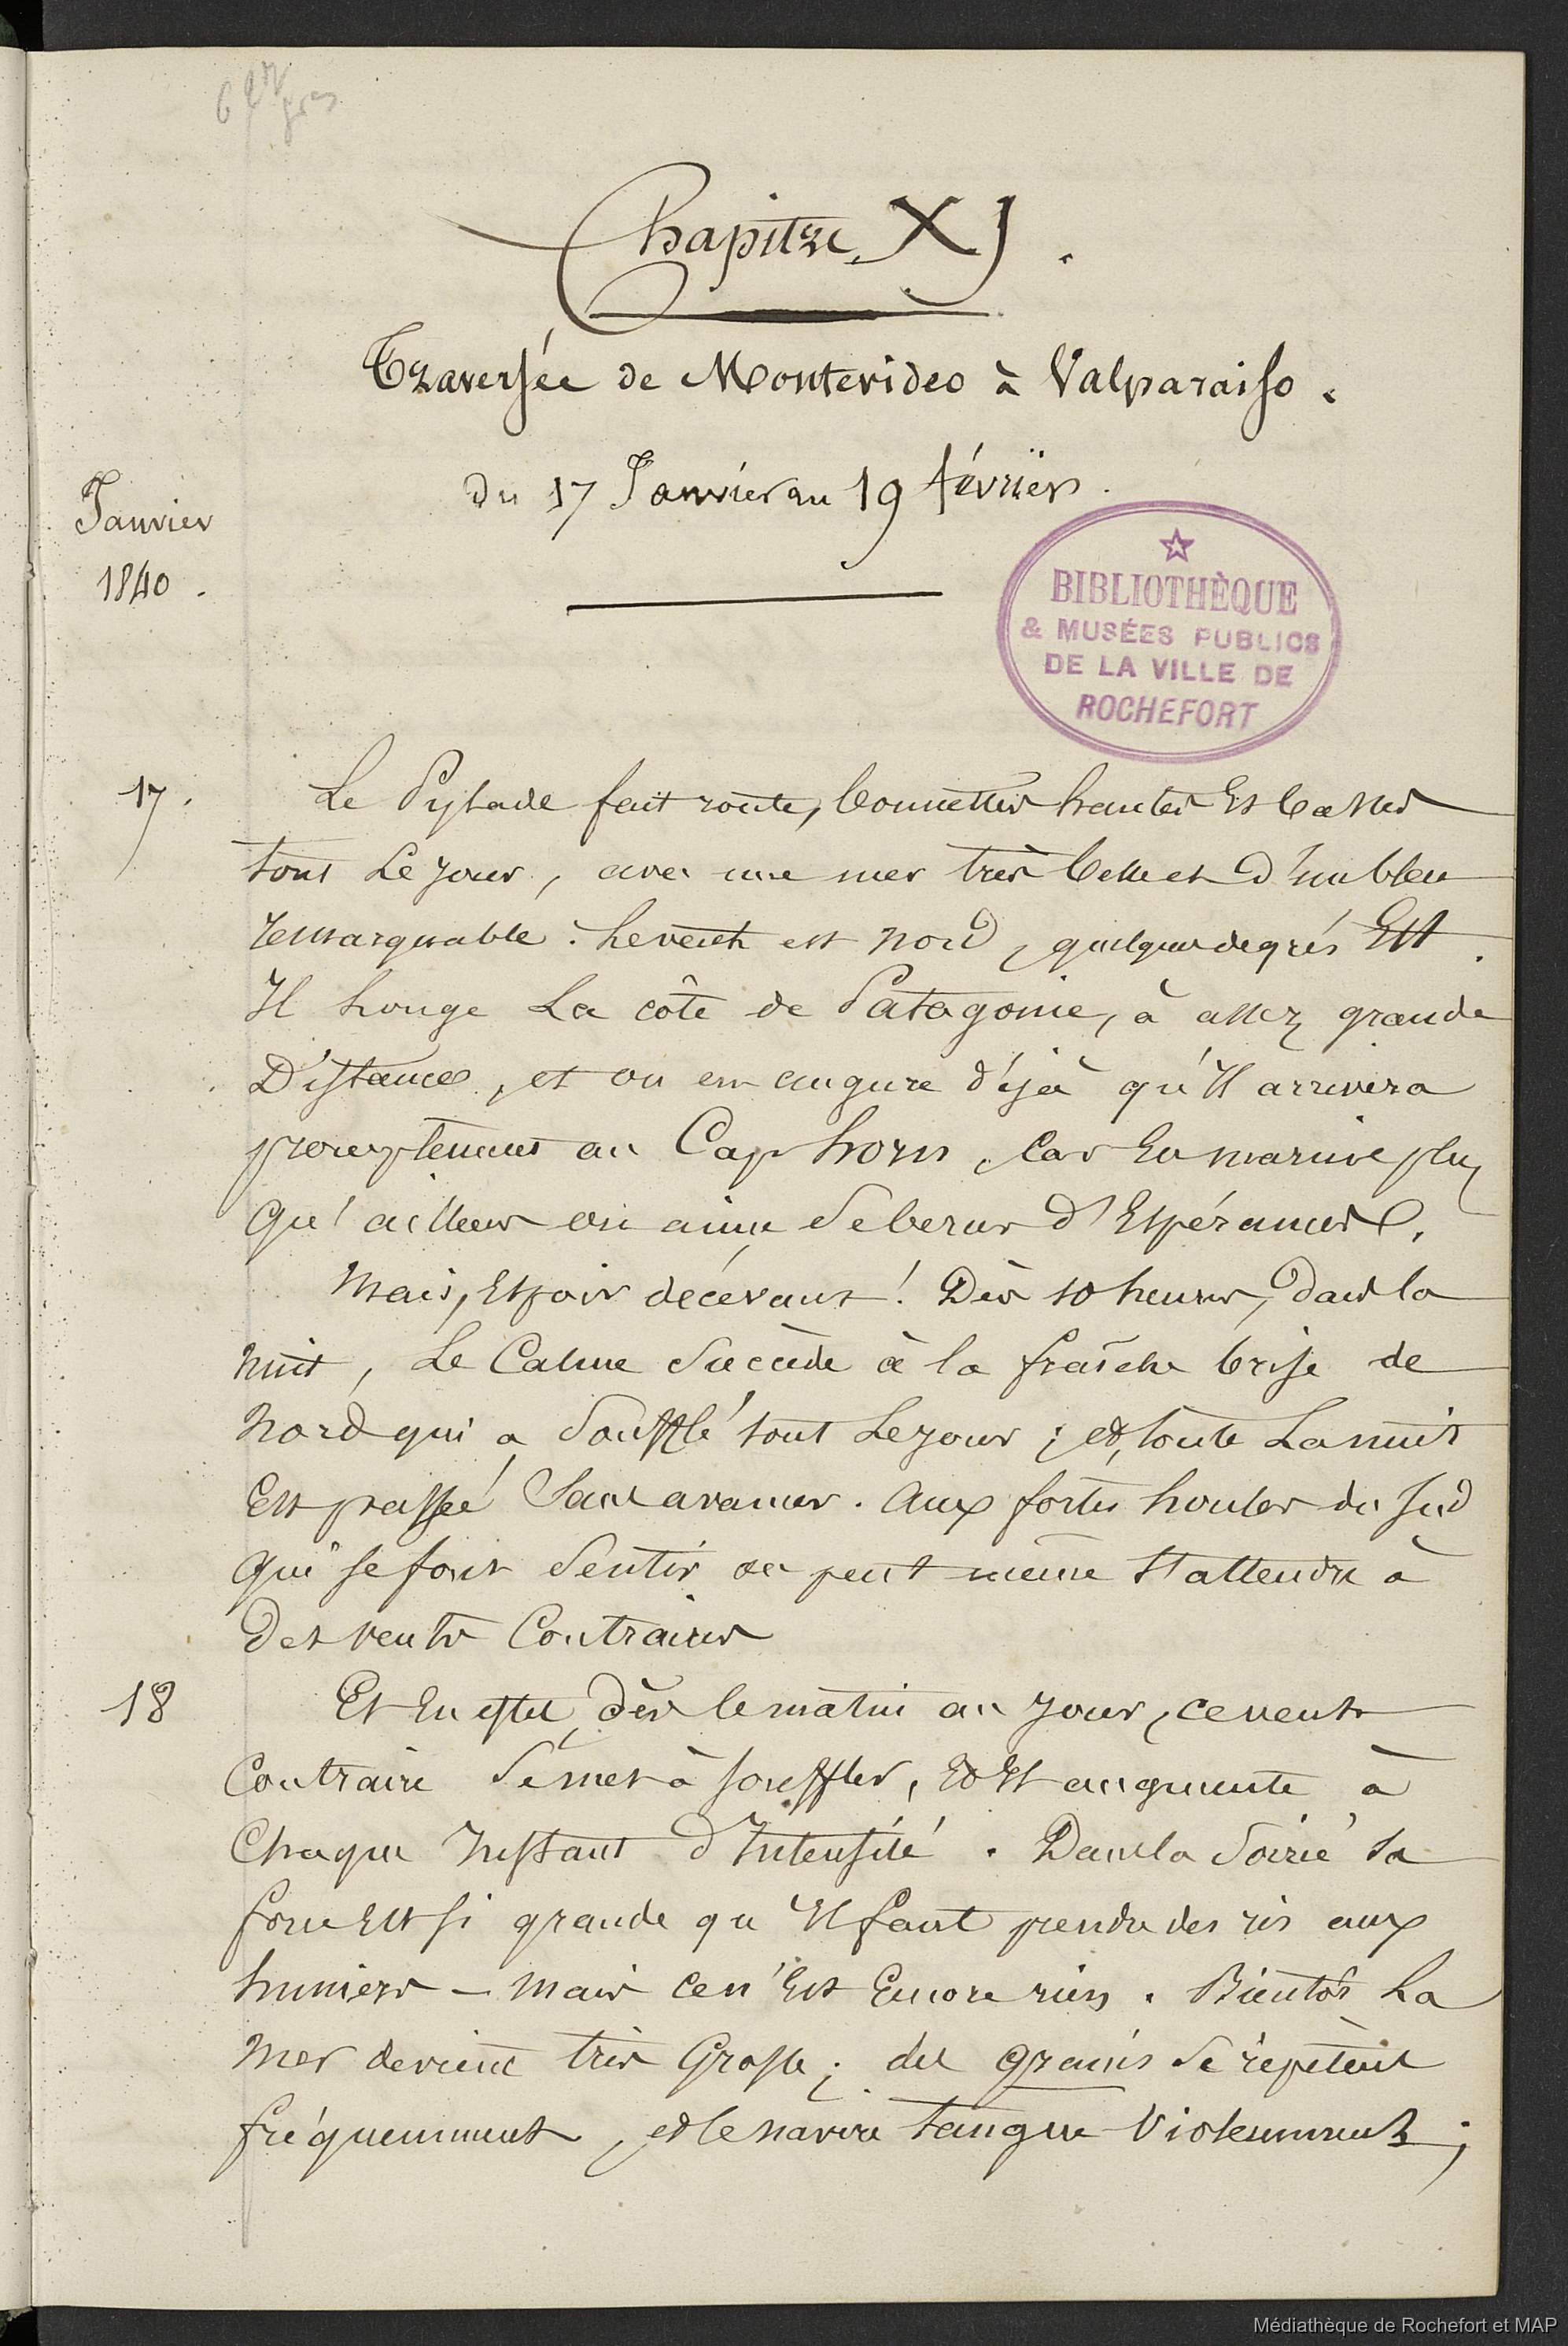 Chapitre XI.
Traversée de Montevideo à Valparaiso.
du 17 Janvier au 19 février.
Janvier
1840.
BIBLIOTHÈQUE
& MUSÉES PUBLICS
DE LA VILLE DE
ROCHEFORT
17.
Le Pylade fait route, bonnettes hautes Et basses
tout Le jour, avec une mer très belle et d'un bleu
remarquable. Le vent est nord, quelques degrés Est.
Il longe La côte de Patagonie, à assez grande
Distance, et on en augure déjà qu'Il arrivera
promptement au Cap horn, Car En marine plus
qu'ailleurs on aime Se bercer d'Espérances.
Mais, Espoir décevant! Dès 10 heures, Dans la
nuit, Le Calme Succède à la fraîche brise de
Nord qui a Soufflé tout Le jour; et, toute La nuit
Est passée Sans avancer. Aux fortes houles du Sud
qui se font Sentir on peut même S'attendre à
Des vents Contraires
18
Et En effet, dès le matin au jour, ce vent
Contraire Se met à souffler, Et Il augmente à
Chaque Instant d'Intensité. Dans la Soirée Sa
force Est si grande qu'Il faut prendre des ris aux
huniers - Mais Ce n'Est Encore rien. Bientôt La
Mer devient très Grosse; des grains Se répètent
fréquemment, et le navire tangue Violemment;
Médiathèque de Rochefort et MAP